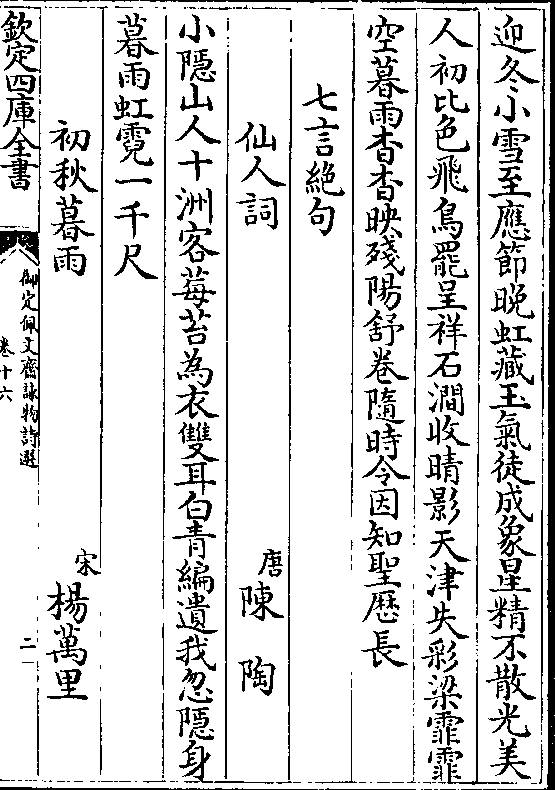 迎冬小雪至應節晚虹藏玉氣徒成象星精不散光美
人初比色飛鳥罷呈祥石澗收晴影天津失彩梁霏霏
空暮雨杳杳映殘陽舒卷隨時令因知聖歴長
七言絶句
仙人詞 唐 陳陶
小隱山人十洲客莓苔為衣雙耳白青編遺我忽隱身
暮雨虹霓一千尺
初秋暮雨 宋 楊萬里
欽定四庫全書
御定佩文齋詠物詩選
卷十六
二